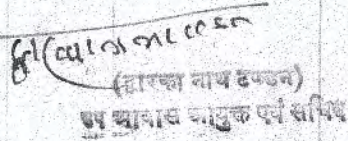 (द्वारका नाथ टण्डन)
उप आवास आयुक्त एवं सचिव